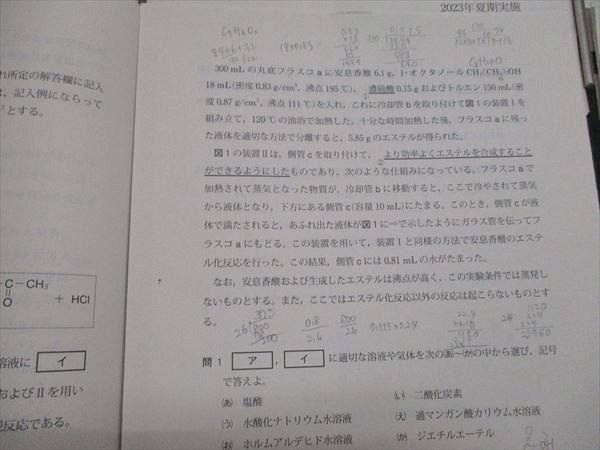 2023年夏期実施
300 mL の丸底フラスコ a に安息香酸 6.1 g, 1-オクタノール CH₃(CH₂)₇OH
18 mL(密度 0.83 g/cm³, 沸点 195 ℃), ①濃硫酸 0.15 g およびトルエン 150 mL(密
度 0.87 g/cm³, 沸点 111 ℃)を入れ, これに冷却管 b を取り付けて図1の装置Ⅰを
組み立て, 120 ℃ の油浴で加熱した。十分な時間加熱した後, フラスコ a に残っ
た液体を適切な方法で分離すると, 5.85 g のエステルが得られた。
図1の装置Ⅱは, 側管 c を取り付けて, ②より効率よくエステルを合成すること
ができるようにしたものであり, 次のような仕組みになっている。フラスコ a で
加熱されて蒸気となった物質が, 冷却管 b に移動すると, ここで冷やされて蒸気
から液体となり, 下方にある側管 c(容量 10 mL)にたまる。このとき, 側管 c が液
体で満たされると, あふれ出た液体が図1に⇨で示したようにガラス管を伝ってフ
ラスコ a にもどる。この装置を用いて, 装置Ⅰと同様の方法で安息香酸のエステ
ル化反応を行った。この結果, 側管 c には 0.81 mL の水がたまった。
なお, 安息香酸および生成したエステルは沸点が高く, この実験条件では蒸発し
ないものとする。また, ここではエステル化反応以外の反応は起こらないものとす
る。
問1 ア , イ に適切な溶液や気体を次の(あ)〜(か)の中から選び, 記号
で答えよ。
(あ) 塩酸
(い) 二酸化炭素
(う) 水酸化ナトリウム水溶液
(え) 過マンガン酸カリウム水溶液
(お) ホルムアルデヒド水溶液
(か) ジエチルエーテル
れ所定の解答欄に記入
は, 記入例にならって
とする。
C－CH₃
O
+ HCl
容液に イ
およびⅡを用い
逆反応である。